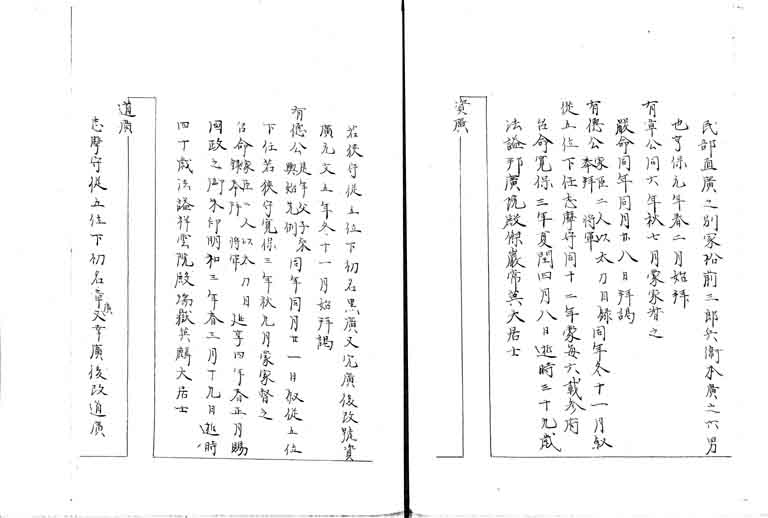 民部直廣之別家松前三郎兵衛本廣之六男
也亨保元年春二月始拜
有章公同六年秋七月蒙家督之
嚴命同年同月廿八日拜謁
有德公家臣二人以太刀目録同年冬十一月叙
奉拜 將軍
從五位下任志摩守同十二年蒙每六載參府
台命寛保三年夏閏四月八日逝時三十九歳
法謚邦廣院殿傑巖常英大居士
資廣
若狹守從五位下初名黒廣又完廣後改號資
廣元文五年冬十一月始拜謁
有德公是年父子來同年同月廿一日叙從五位
與始先例
下任若狹守寛保三年秋九月蒙家督之
台命家臣二人以太刀目延享四年春正月賜
録奉拜 將軍
國政之御朱印明和三年春三月十九日逝時
四十歳法謚祥雲院殿瑞嶽英麟大居士
道廣
志摩守從五位下初名章廣又幸廣後改道廣